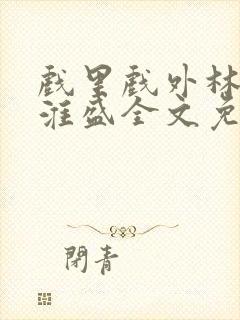 戲里戲外林
淮盛全文免
閉青